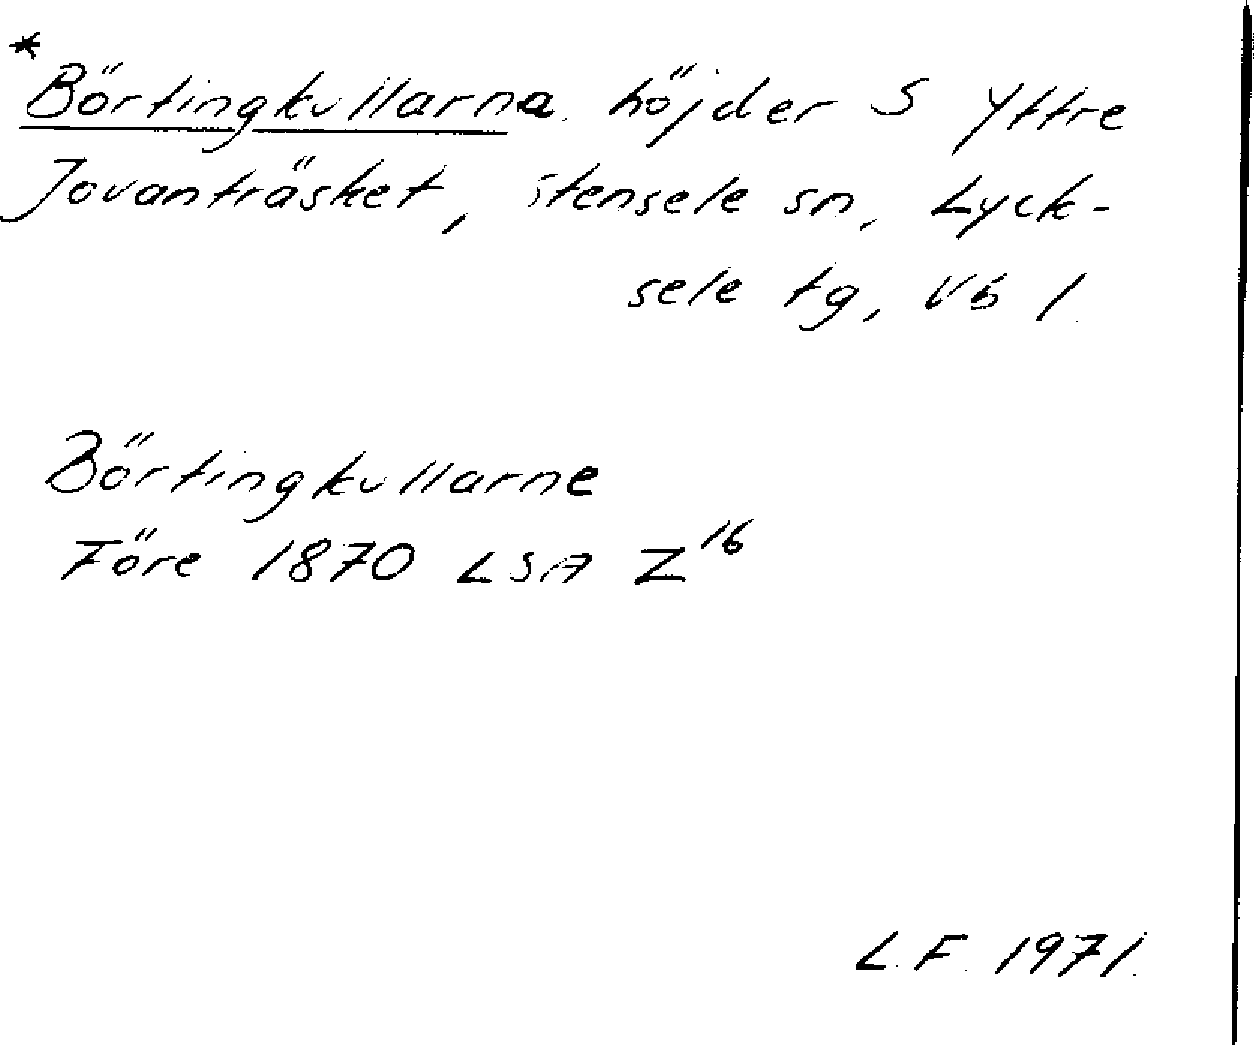 *
Börtingkullarna, höjder S Yttre
Jovanträsket, Stensele sn, Lyck-
sele tg, Vb l.
Börtingkullarne
Före 1870 LSA Z 16
L.F. 1971.